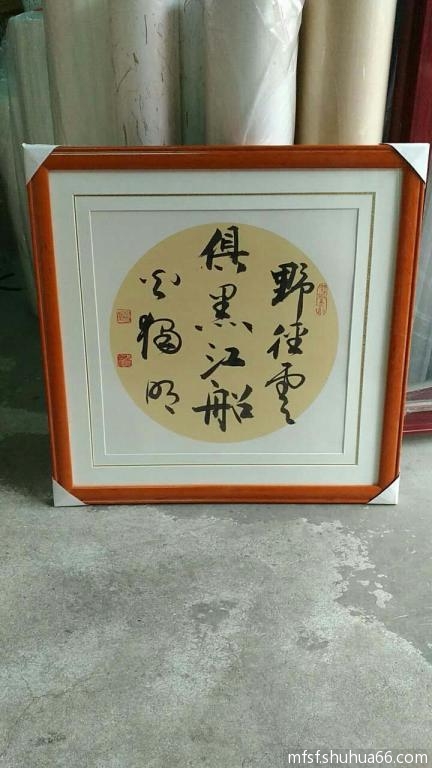 野徑雲
俱黑江船
火獨明
mfsfshuhua66.com